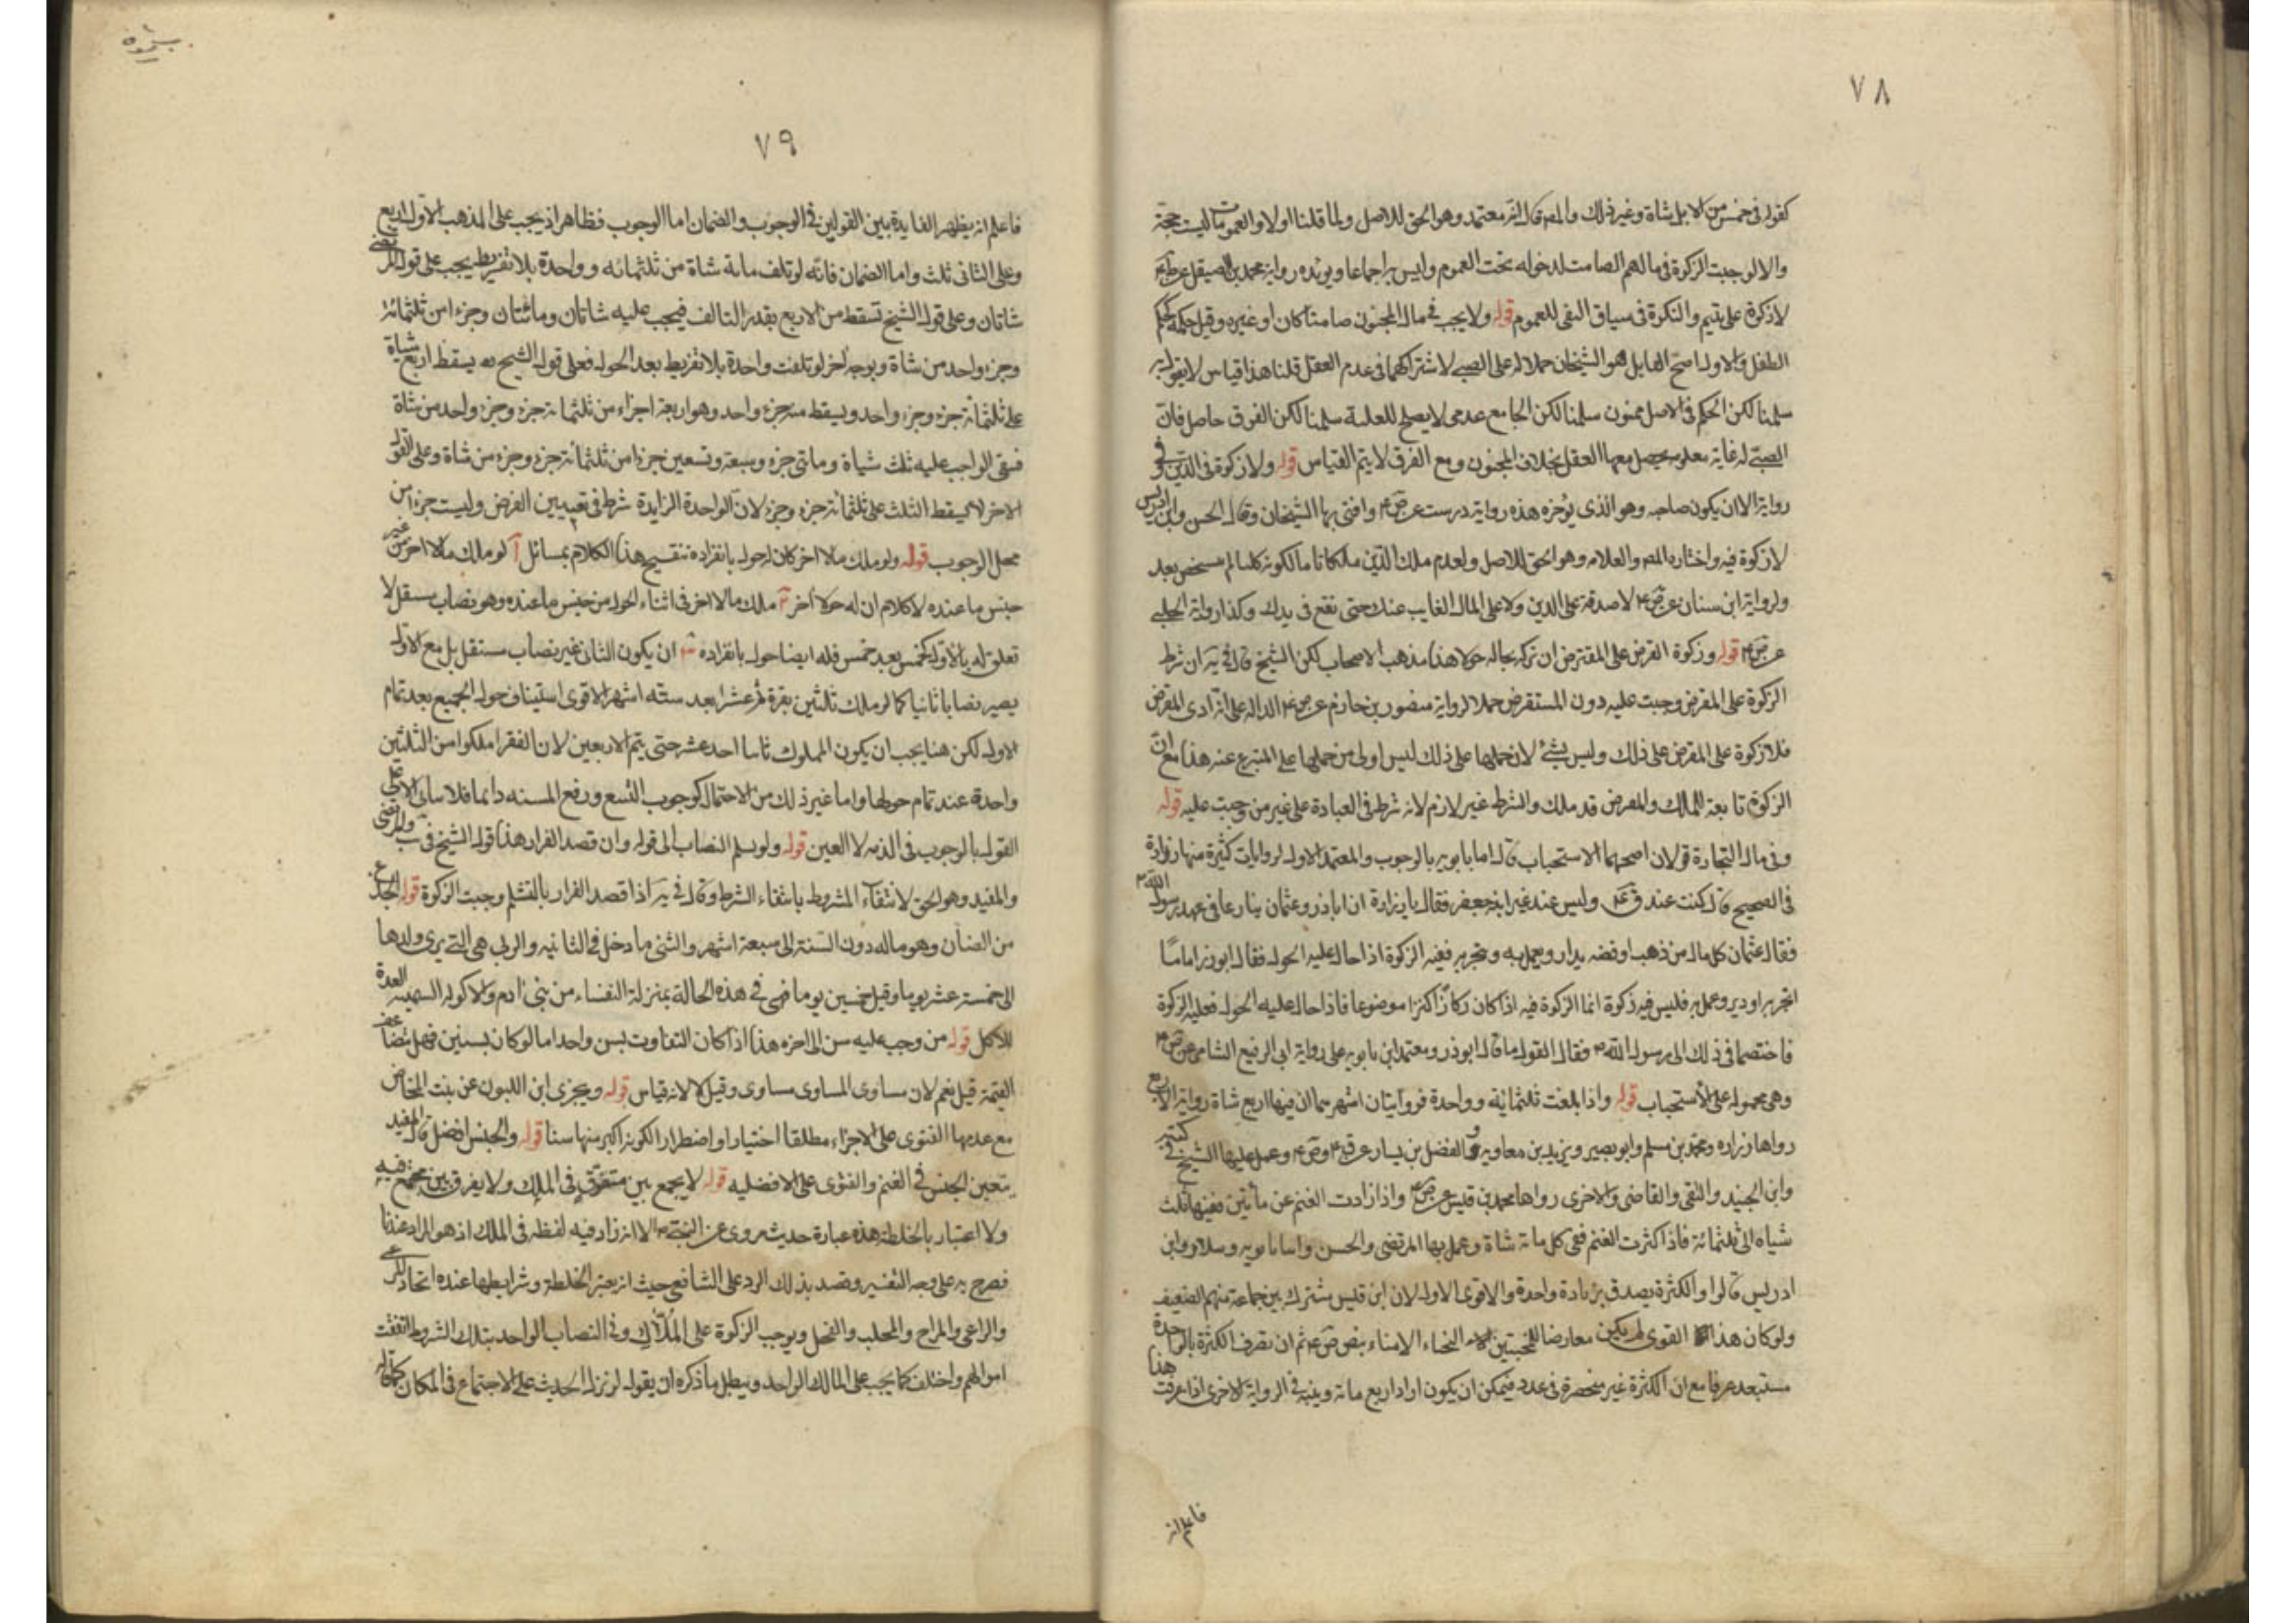 ٧٨
كقوله في خمس من الابل شاة وغير ذلك والمص قال انه معتمد وهو الحق للاصل ولما قلنا اولا والعمومات ليست حجة
والا لوجبت الزكوة في مالهم الصامت لدخوله تحت العموم وليس اجماعا ويؤيده رواية محمد بن
لا زكوة على يتيم والنكرة في سياق النفى للعموم قوله ولا يجب في مال المجنون صامتا كان او غيره وقيل حكمه حكم
الطفل والاول اصح القايل هو الشيخان حملا له على الصبى لاشتراكهما في عدم العقل قلنا هذا قياس لا نقول به
سلمنا لكن الحكم في الاصل ممنوع سلمنا لكن الجامع عدمى لا يصلح للعلية سلمنا لكن الفرق حاصل فان
الصبى له غاية معلومة يحصل معها العقل بخلاف المجنون ومع الفرق لا يتم القياس قوله ولا زكوة في الدين وفى
رواية الا ان يكون صاحبه وهو الذى يؤخره هذه رواية درست عن ص ع وافتى بها الشيخان وقال الحسن وابن ادريس
لا زكوة فيه واختاره المص والعلامه وهو الحق للاصل ولعدم ملك الدين ملكا تاما لكونه كليا لم يتشخص بعد
ولرواية ابن سنان عن ص ع لا صدقة على الدين ولا على المال الغايب عنك حتى تقع في يدك وكذا رواية الحلبى
عن ص ع قوله وزكوة القرض على المقترض ان تركه بحاله حولا هذا مذهب الاصحاب لكن الشيخ قال في يه ان شرط
الزكوة على المقرض وجبت عليه دون المستقرض حملا لرواية منصور بن حازم عن ص ع الدالة على انه ادى المقرض
فلا زكوة على المقرض على ذلك وليس بشئ لان حملها على ذلك ليس اولى من حملها على المتبرع عنه هذا مع ان
الزكوة تابعة للملك والمقرض قد ملك والشرط غير لازم لانه شرط في العبادة على غير من وجبت عليه قوله
وفى مال التجارة قولان اصحهما الاستحباب قال ابنا بابويه بالوجوب والمعتمد الاول لروايات كثيرة منها رواية زرارة
في الصحيح قال كنت عند ق ع وليس عنده غير ابنه جعفر فقال يا زرارة ان اباذر وعثمان تنازعا في عهد رسول الله ص
فقال عثمان كل مال من ذهب او فضه يدار ويعمل به ويتجر به ففيه الزكوة اذا حال عليه الحول فقال ابوذر اما ما
اتجر به او دير وعمل به فليس فيه زكوة انما الزكوة فيه اذا كان ركازا كنزا موضوعا فاذا حال عليه الحول فعليه الزكوة
فاختصما في ذلك الى رسول الله ص فقال القول ما قال ابوذر ومعتمد ابن بابويه على رواية ابى الربيع الشامى عن ص ع
وهى محمولة على الاستحباب قوله واذا بلغت ثلثمائة وواحدة فروايتان اشهرهما ان فيها اربع شاة رواية الاربع
رواها زراره ومحمد بن مسلم وابو بصير ويزيد بن معاويه والفضل بن يسار عن ق ع وص ع وعمل عليها الشيخ في كتبه
وابن الجنيد والتقى والقاضى والاخرى رواها محمد بن قيس عن ص ع واذا زادت الغنم عن مأتين ففيها ثلث
شياه الى ثلثمائة فاذا كثرت الغنم ففى كل مائة شاة وعمل بها المرتضى والحسن وابنا بابويه وسلار وابن
ادريس قالوا والكثرة يصدق بزيادة واحدة والاقوى الاول لان ابن قيس مشترك بين جماعة منهم الضعيف
ولو كان هذا القوى لم يكن معارضا للنجباء الامناء بنص ص ع ثم ان تصرف الكثرة بالواحدة
مستبعد عرفا مع ان الكثرة غير منحصرة في عدد فيمكن ان يكون اراد اربع مائة وينبه في الرواية الاخرى اذا عرفت هذا
فاعلم انه
٧٩
فاعلم انه يظهر الفايدة بين القولين في الوجوب والضمان اما الوجوب فظاهر اذ يجب على المذهب الاول اربع
وعلى الثانى ثلث واما الضمان فانه لو تلف مائة شاة من ثلثمائه وواحدة بلا تفريط يجب على قول المرتضى
شاتان وعلى قول الشيخ تسقط من الاربع بقدر التالف فيجب عليه شاتان ومائتان وجزء من ثلثمائة
وجزء واحد من شاة وبوجه اخر لو تلفت واحدة بلا تفريط بعد الحول فعلى قول الشيخ ره يسقط اربع شياة
على ثلثمائة جزء وجزء واحد ويسقط منه جزء واحد وهو اربعة اجزاء من ثلثمائة جزء وجزء واحد من شاة
فبقى الواجب عليه ثلث شياة ومأتى جزء وسبعة وتسعين جزءا من ثلثمائة جزء وجزء من شاة وعلى القول
الاخر لا يسقط الثلث على ثلثمائة جزء وجزء لان الواحدة الزايدة شرط في تعيين الفرض وليست جزءا من
محل الوجوب قوله ولو ملك مالا اخر كان له حول بانفراده تنقيح هذا الكلام بمسائل آ لو ملك مالا اخر من غير
جنس ما عنده لا كلام ان له حولا اخر ب ملك مالا اخر في اثناء الحول من جنس ما عنده وهو نصاب مستقل لا
تعلق له بالاول كخمس بعد خمس فله ايضا حول بانفراده ج ان يكون الثانى غير نصاب مستقل بل مع الاول
يصير نصابا ثانيا كما لو ملك ثلثين بقرة ثم عشرا بعد سته اشهر الاقوى استيناف حول الجميع بعد تمام
الاول لكن هنا يجب ان يكون المملوك ثانيا احد عشر حتى يتم الاربعين لان الفقرا ملكوا من الثلثين
واحدة عند تمام حولها واما غير ذلك من الاحتمال كوجوب التسع وربع المسنه دايما فلا يتأتى الا على
القول بالوجوب في الذمه لا العين قوله ولو ثلم النصاب الى قوله وان قصد الفرار هذا قول الشيخ في ب والمرتضى
والمفيد وهو الحق لانتفاء المشروط بانتفاء الشرط وقال في يه اذا قصد الفرار بالثلم وجبت الزكوة قوله الجذع
من الضأن وهو ماله دون السنة الى سبعة اشهر والثنى ما دخل في الثانيه والربى هى التى يربى ولدها
الى خمسة عشر يوما وقيل خمسين يوما فهى في هذه الحالة بمنزلة النفساء من بنى ادم والاكولة السمينه المعدة
للاكل قوله من وجب عليه سن الى اخره هذا اذا كان التفاوت بسن واحد اما لو كان بسنين فهل يتضاعف
القيمة قيل نعم لان مساوى المساوى مساوى وقيل لا لانه قياس قوله ويجزى ابن اللبون عن بنت المخاض
مع عدمها الفتوى على الاجزاء مطلقا اختيارا واضطرارا لكونه اكبر منها سنا قوله والجنس افضل قال المفيد
يتعين الجنس في الغنم والفتوى على الافضليه قوله لا يجمع بين متفرق في الملك ولا يفرق بين مجتمع فيه
ولا اعتبار بالخلطة هذه عبارة حديث مروى عن النبى ص الا انه زاد فيه لفظه في الملك اذ هو المراد عندنا
فصرح به على وجه التفسير وقصد بذلك الرد على الشافعى حيث انه يعتبر الخلطة وشرايطها عنده اتحاد المرعى
والراعى والمراح والمحلب والفحل ويوجب الزكوة على الملاك وفى النصاب الواحد بتلك الشروط اتفقت
اموالهم واختلف كما يجب على المالك الواحد ويبطل ما ذكره ان يقول لو نزل الحديث على الاجتماع في المكان كما قاله